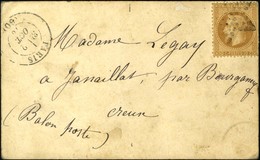 Madame Legay
a Janaillat, par Bourganeuf
Creuse
(Balon poste)
PARIS
OCT.